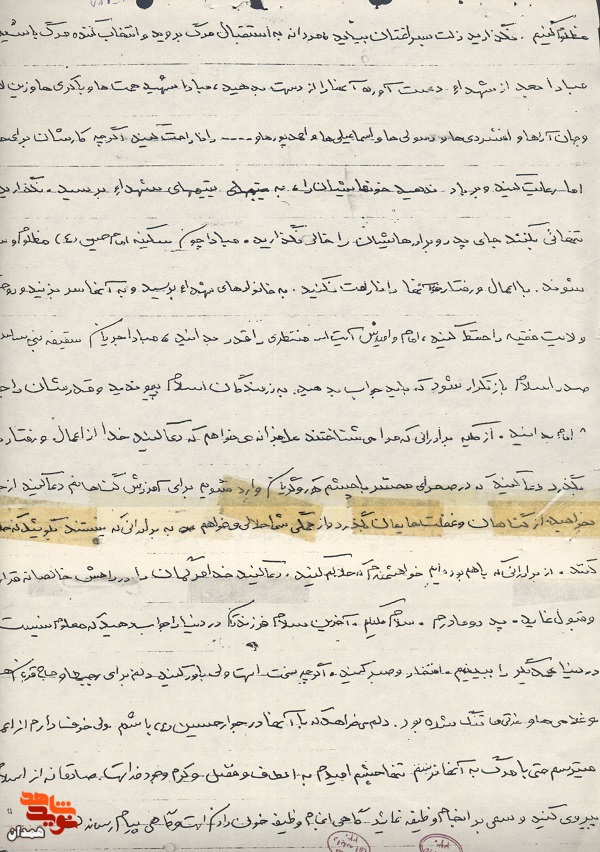 مظلوم کنیم. نگذارید ذلت سراغتان بیاید، مردانه به استقبال مرگ بروید و انتخاب کننده مرگ باشید
مبادا بعد از شهداء دست آورد آنها را از دست بدهید، مبادا شهید همت ها و باکری ها و زین
و جهان آراها و افشردی ها و رسولی ها و اسماعیلی ها و احمدپورها و .... را ناراحت کنید اگرچه کارستان برای
اما رعایت کنید و بر باد ندهید خونهایشان را، به یتیمهای شهداء برسید. نگذارید
تنهائی بکنند جای پدر و برادرهایشان را خالی نگذارید. مبادا چون سکینه امام حسین (ع) مظلوم و
شوند. با اعمال و رفتارتان آنها را ناراحت نکنید. به خانوادهای شهداء برسید و به آنها سر بزنید و
ولایت فقیه را حفظ کنید، امام و امیدش آیت اله منتظری را قدر بدانید، مبادا جریان سقیفه بنی ساعده
صدر اسلام باز تکرار شود که باید جواب بدهید. به رزمندگان اسلام بپیوندید و قدرشان را
امام بدانید. از کلیه برادرانی که مرا می شناختند عاجزانه می خواهم که دعا کنید خدا از اعمال و رفتار
بگذرد دعا کنید که در صحرای محشر با چشم کور و گریان وارد نشویم برای آمرزش گناهانم دعا کنید از
بخواهید از گناهان و غفلت هایمان بگذرد و از جملگی شما حلالی می خواهم به برادرانی که نیستند بگوئید که
کنند. از برادرانی که با هم بوده ایم خواهشمندم که حلالم کنید. دعا کنید خدا مرگمان را در راهش خالصانه قرار
و قبول نماید. پدر و مادرم. سلام علیکم. آخرین سلام فرزندتان در دنیا را جواب دهید که معلوم نیست
در دنیا همدیگر را ببینیم. افتخار و صبر کنید. اگرچه سخت است ولی باور کنید دلم برای
و غلامی ها و عزتی ها تنگ شده بود. دلم می خواهد که با آنها در جوار حسین (ع) باشم ولی خوف دارم از
میترسم حتی با مرگ به آنها نرسم تنها چشم امیدم به الطاف و فضل و کرم وجود خداست. صادقانه از اسلام
پیروی کنید و سعی بر انجام وظیفه نمائید. گاهی انجام وظیفه خون دادن است و گاهی پیام رساندن
شاهد
نوید
همدان